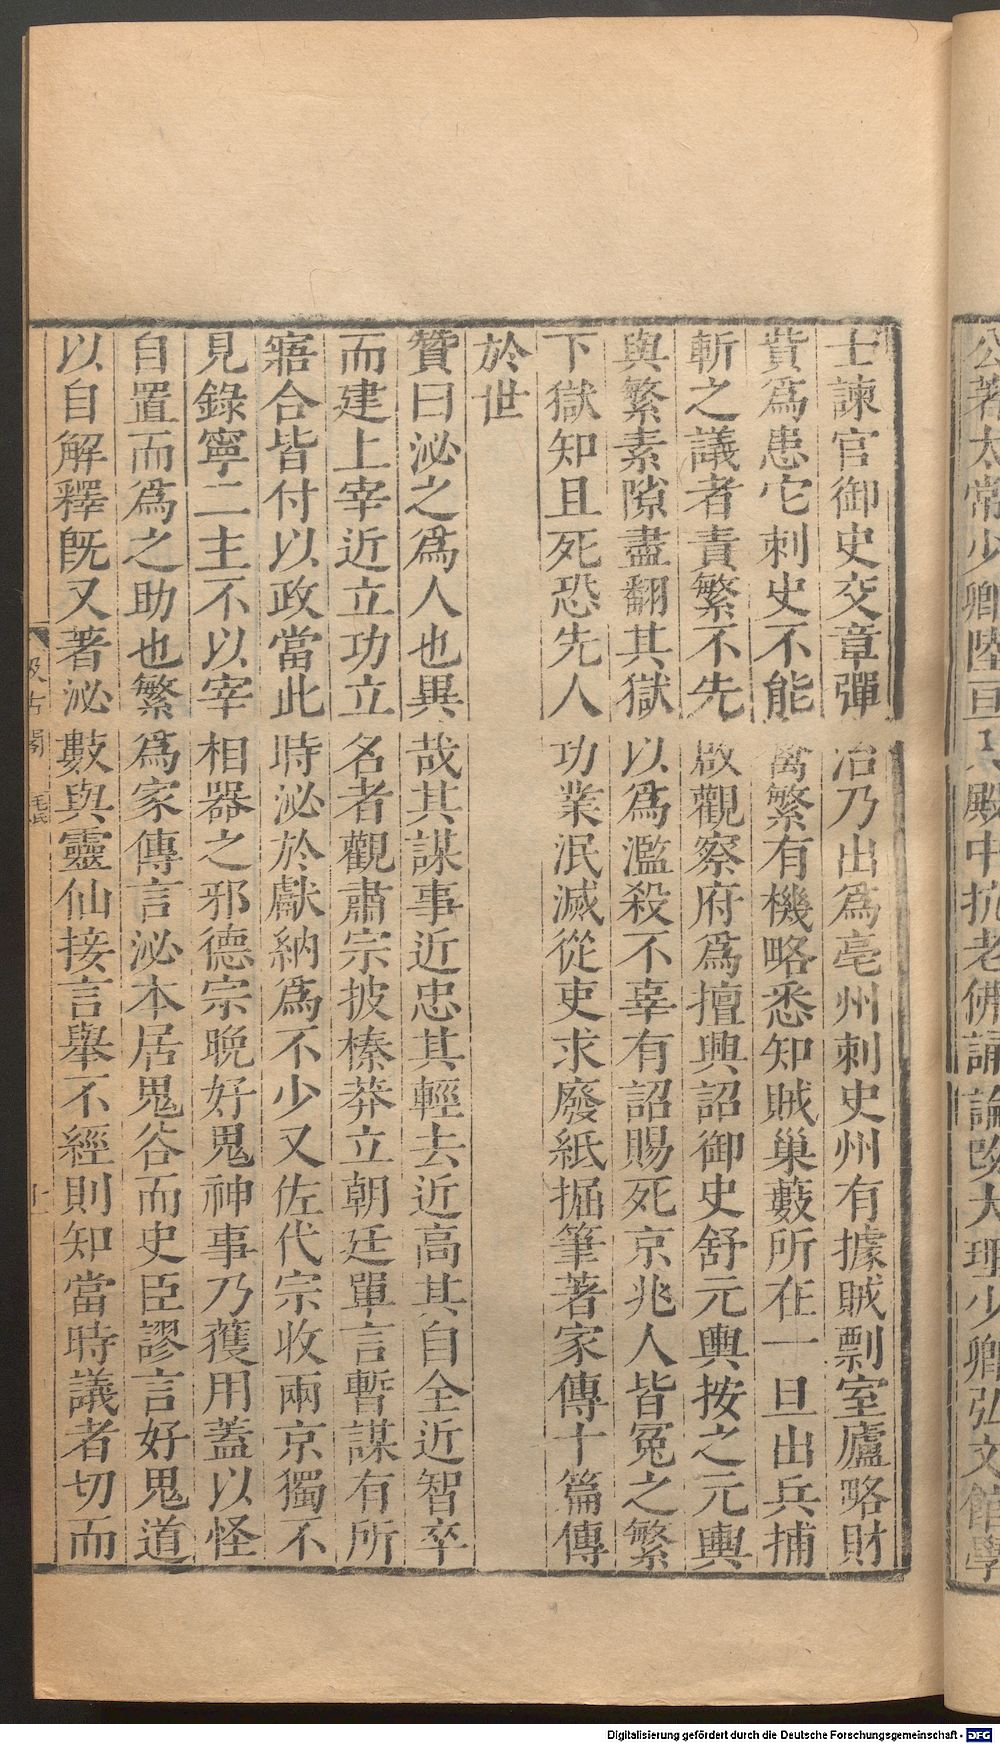 公著太常少卿陸亘入殿中抗老佛誦論改大理少卿弘文館學
士諫官御史交章彈治乃出爲亳州刺史州有據賊剽室廬略財
貲爲患它刺史不能禽繁有機略悉知賊巢藪所在一旦出兵捕
斬之議者責繁不先啟觀察府爲擅興詔御史舒元輿按之元輿
與繁素隙盡翻其獄以爲濫殺不辜有詔賜死京兆人皆冤之繁
下獄知且死恐先人功業泯滅從吏求廢紙掘筆著家傳十篇傳
於世
贊曰泌之爲人也異哉其謀事近忠其輕去近高其自全近智卒
而建上宰近立功立名者觀肅宗披榛莽立朝廷單言暫謀有所
寤合皆付以政當此時泌於獻納爲不少又佐代宗收兩京獨不
見錄寧二主不以宰相器之邪德宗晚好鬼神事乃獲用蓋以怪
自置而爲之助也繁爲家傳言泌本居鬼谷而史臣謬言好鬼道
以自解釋旣又著泌數與靈仙接言舉不經則知當時議者切而
汲古閣
毛氏
Digitalisierung gefördert durch die Deutsche Forschungsgemeinschaft - DFG